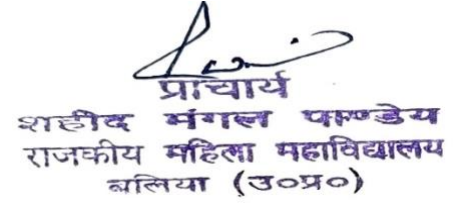 प्राचार्य
शहीद मंगल पाण्डेय
राजकीय महिला महाविद्यालय
बलिया (उ०प्र०)